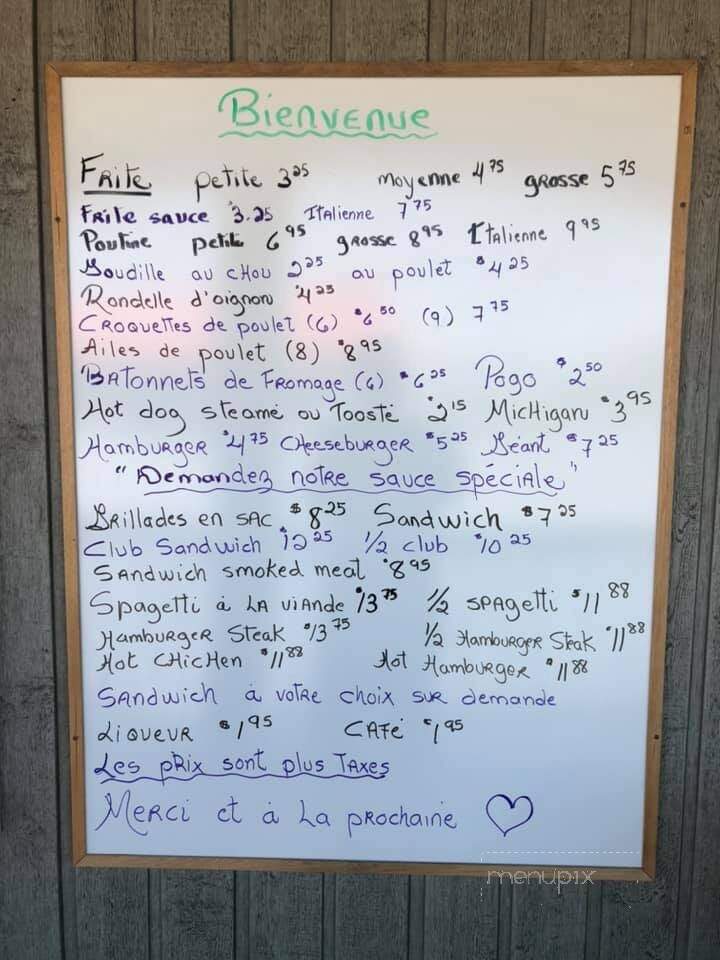 Bienvenue
Frite petite 3 25 moyenne 4 75 grosse 5 75
Frite sauce $3.25 Italienne 7 75
Poutine petite 6 95 grosse 8 95 Italienne 9 95
Goudille au chou 2 25 au poulet $4 25
Rondelle d'oignon $4 25
Croquettes de poulet (6) $6 50 (9) 7 75
Ailes de poulet (8) $8 95
Batonnets de Fromage (6) $6 25 Pogo $2 50
Hot dog steamé ou Toosté $2 15 Michigan $3 95
Hamburger $4 75 Cheeseburger $5 25 Géant $7 25
"Demandez notre sauce spéciale"
Grillades en sac $8 25 Sandwich $7 25
Club Sandwich $12 25 1/2 club $10 25
Sandwich smoked meat $8 95
Spagetti à la viande $13 75 1/2 spagetti $11 88
Hamburger Steak $13 75 1/2 Hamburger Steak $11 88
Hot Chicken $11 88 Hot Hamburger $11 88
Sandwich à votre choix sur demande
Liqueur $1 95 Café $1 95
Les prix sont plus Taxes
Merci et à La prochaine ♡
menupix